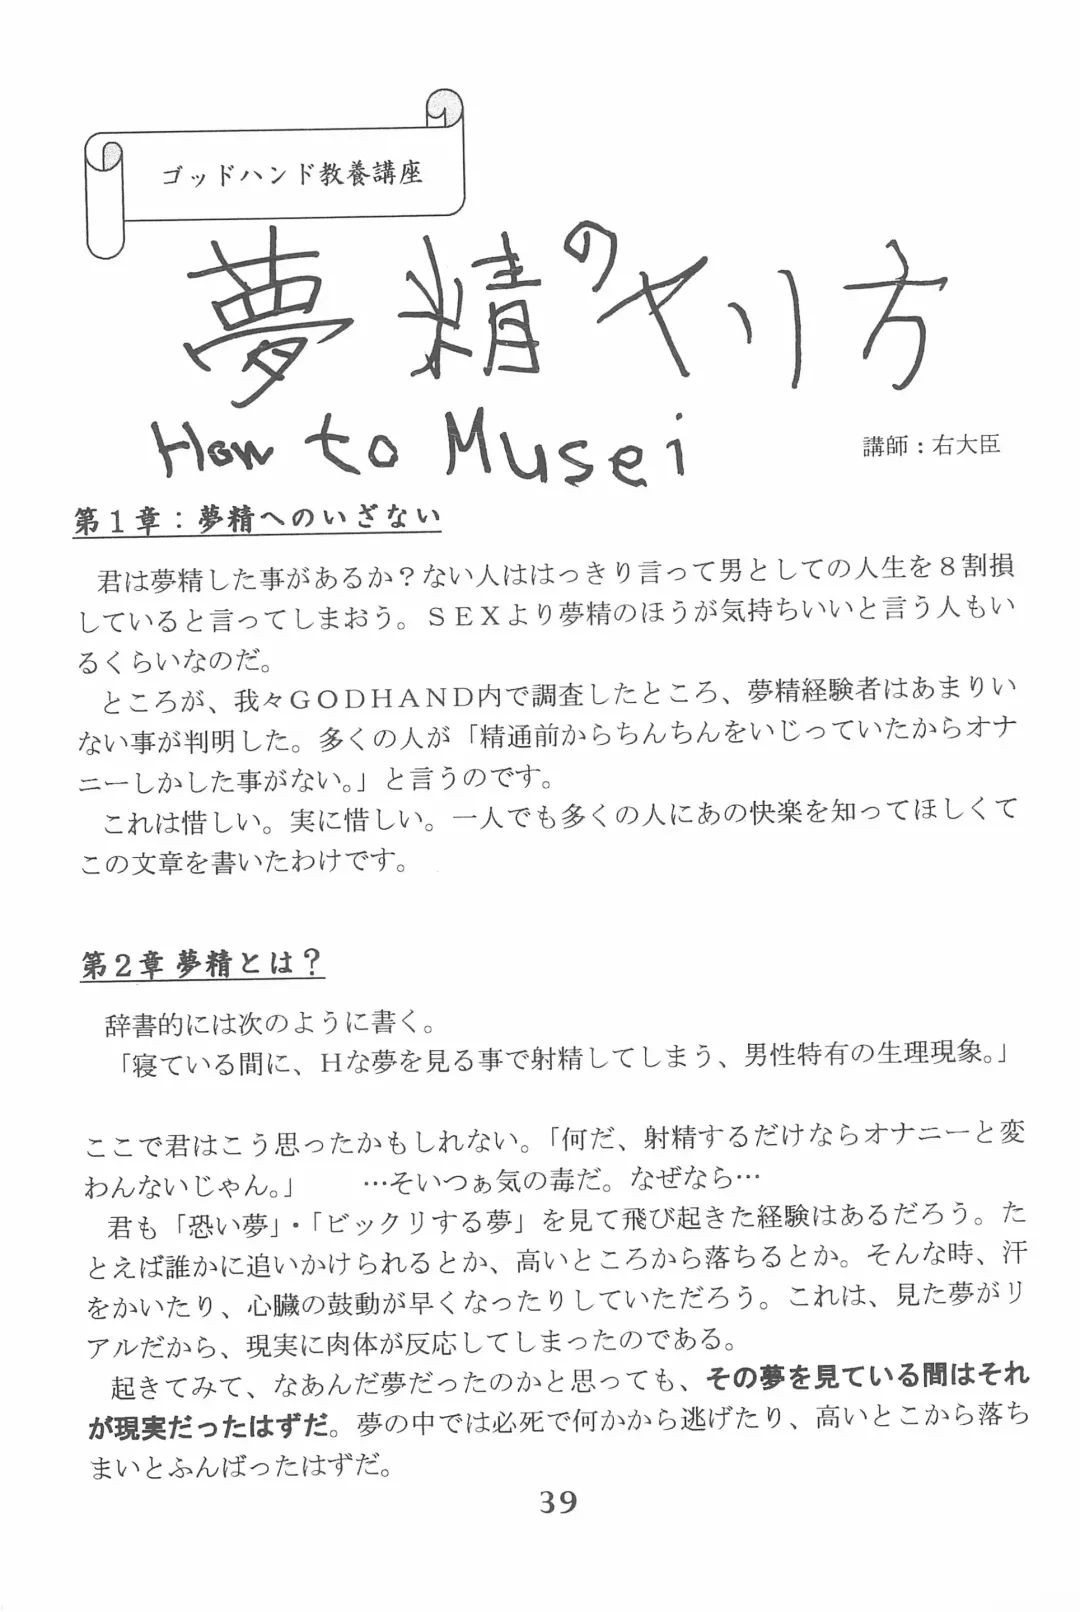 ゴッドハンド教養講座
夢精のヤリ方
How to Musei
講師：右大臣
第１章：夢精へのいざない
君は夢精した事があるか？ない人ははっきり言って男としての人生を８割損
していると言ってしまおう。ＳＥＸより夢精のほうが気持ちいいと言う人もい
るくらいなのだ。
ところが、我々ＧＯＤＨＡＮＤ内で調査したところ、夢精経験者はあまりい
ない事が判明した。多くの人が「精通前からちんちんをいじっていたからオナ
ニーしかした事がない。」と言うのです。
これは惜しい。実に惜しい。一人でも多くの人にあの快楽を知ってほしくて
この文章を書いたわけです。
第２章 夢精とは？
辞書的には次のように書く。
「寝ている間に、Ｈな夢を見る事で射精してしまう、男性特有の生理現象。」
ここで君はこう思ったかもしれない。「何だ、射精するだけならオナニーと変
わんないじゃん。」　　…そいつぁ気の毒だ。なぜなら…
君も「恐い夢」・「ビックリする夢」を見て飛び起きた経験はあるだろう。た
とえば誰かに追いかけられるとか、高いところから落ちるとか。そんな時、汗
をかいたり、心臓の鼓動が早くなったりしていただろう。これは、見た夢がリ
アルだから、現実に肉体が反応してしまったのである。
起きてみて、なあんだ夢だったのかと思っても、その夢を見ている間はそれ
が現実だったはずだ。夢の中では必死で何かから逃げたり、高いとこから落ち
まいとふんばったはずだ。
39